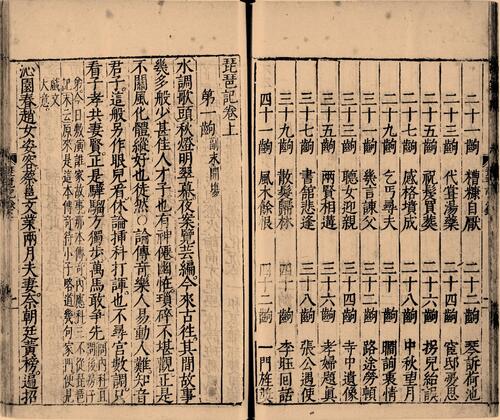 二十一齣 糟糠自厭 二十二齣 琴訴荷池
二十三齣 代嘗湯藥 二十四齣 宦邸憂思
二十五齣 祝髮買葬 二十六齣 拐兒紿誤
二十七齣 感格墳成 二十八齣 中秋望月
二十九齣 乞丐尋夫 三十齣 瞷詢衷情
三十一齣 幾言諫父 三十二齣 路途勞頓
三十三齣 聽女迎親 三十四齣 寺中遺像
三十五齣 兩賢相遘 三十六齣 孝婦題真
三十七齣 書館悲逢 三十八齣 張公遇使
三十九齣 散髮歸林 四十齣 李旺回話
四十一齣 風木餘恨 四十二齣 一門旌
琵琶記卷上
第一齣 副末開場
水調歌頭秋燈明翠幕夜案覽芸編今來古往其間故事
幾多般少甚佳人才子也有神僊幽恠瑣碎不堪觀正是
不關風化體縱好也徒然○論傳奇樂人易動人難知音
君子這般另作眼兒看休論插科打諢也不尋宮數調只
看子孝共妻賢正是驊騮方獨步萬馬敢爭先 問內科且
問後房子
弟今日敷演誰家故事那本傳奇內應科三不從琵琶
記末云原來是這本傳奇待小子略道幾句家門便見
戲文
大意
沁園春趙女姿容蔡邕文業兩月夫妻奈朝廷黃榜遍招